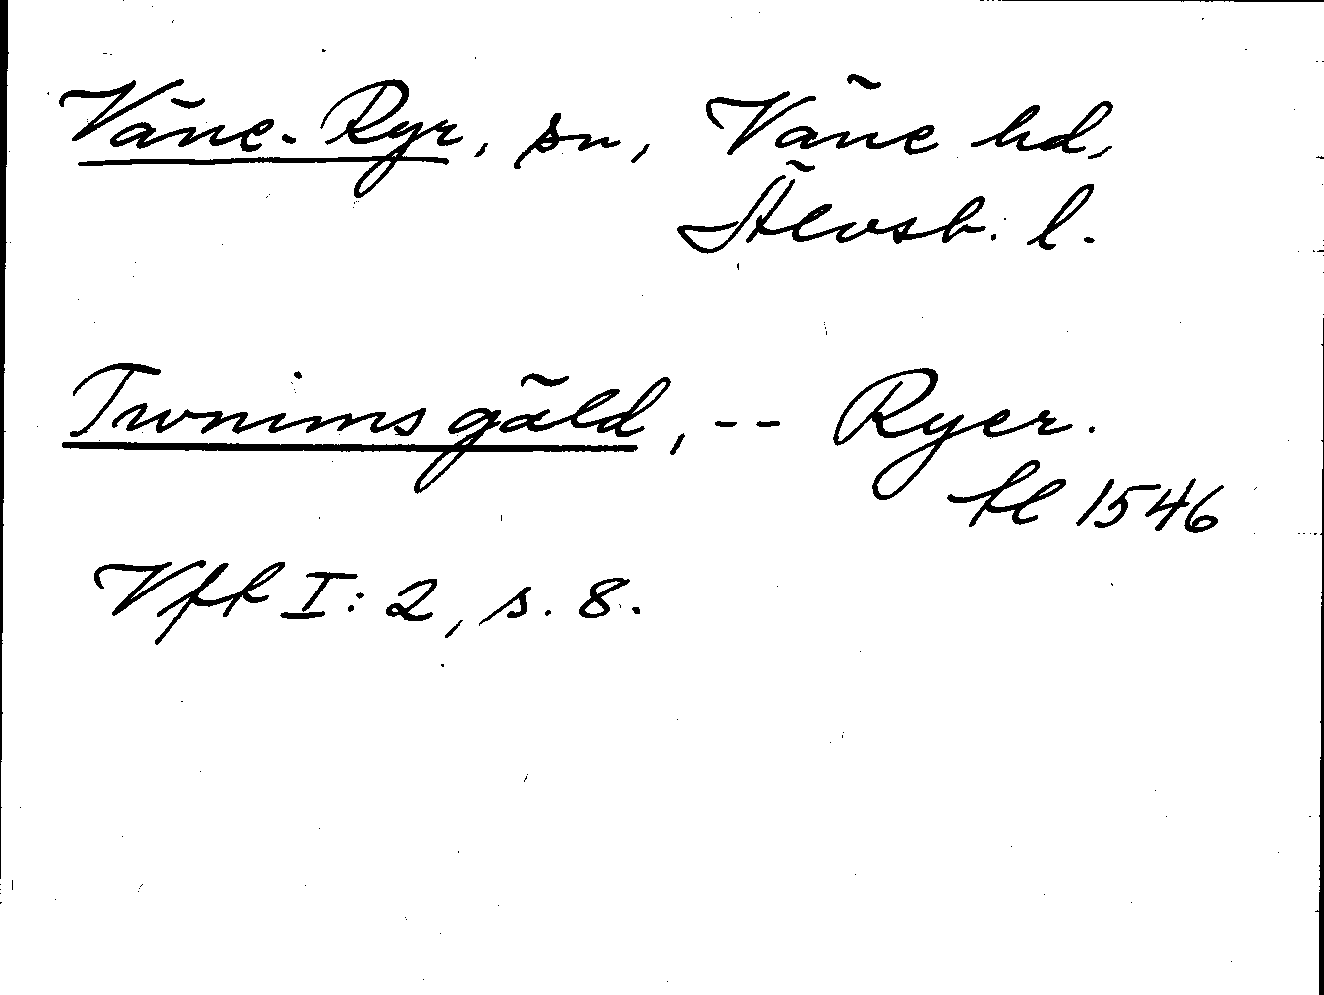 Väne-Ryr, sn, Väne hd,
Älvsb. l.
Twnims gäld, -- Ryer.
tl 1546
Vfk I: 2, s. 8.